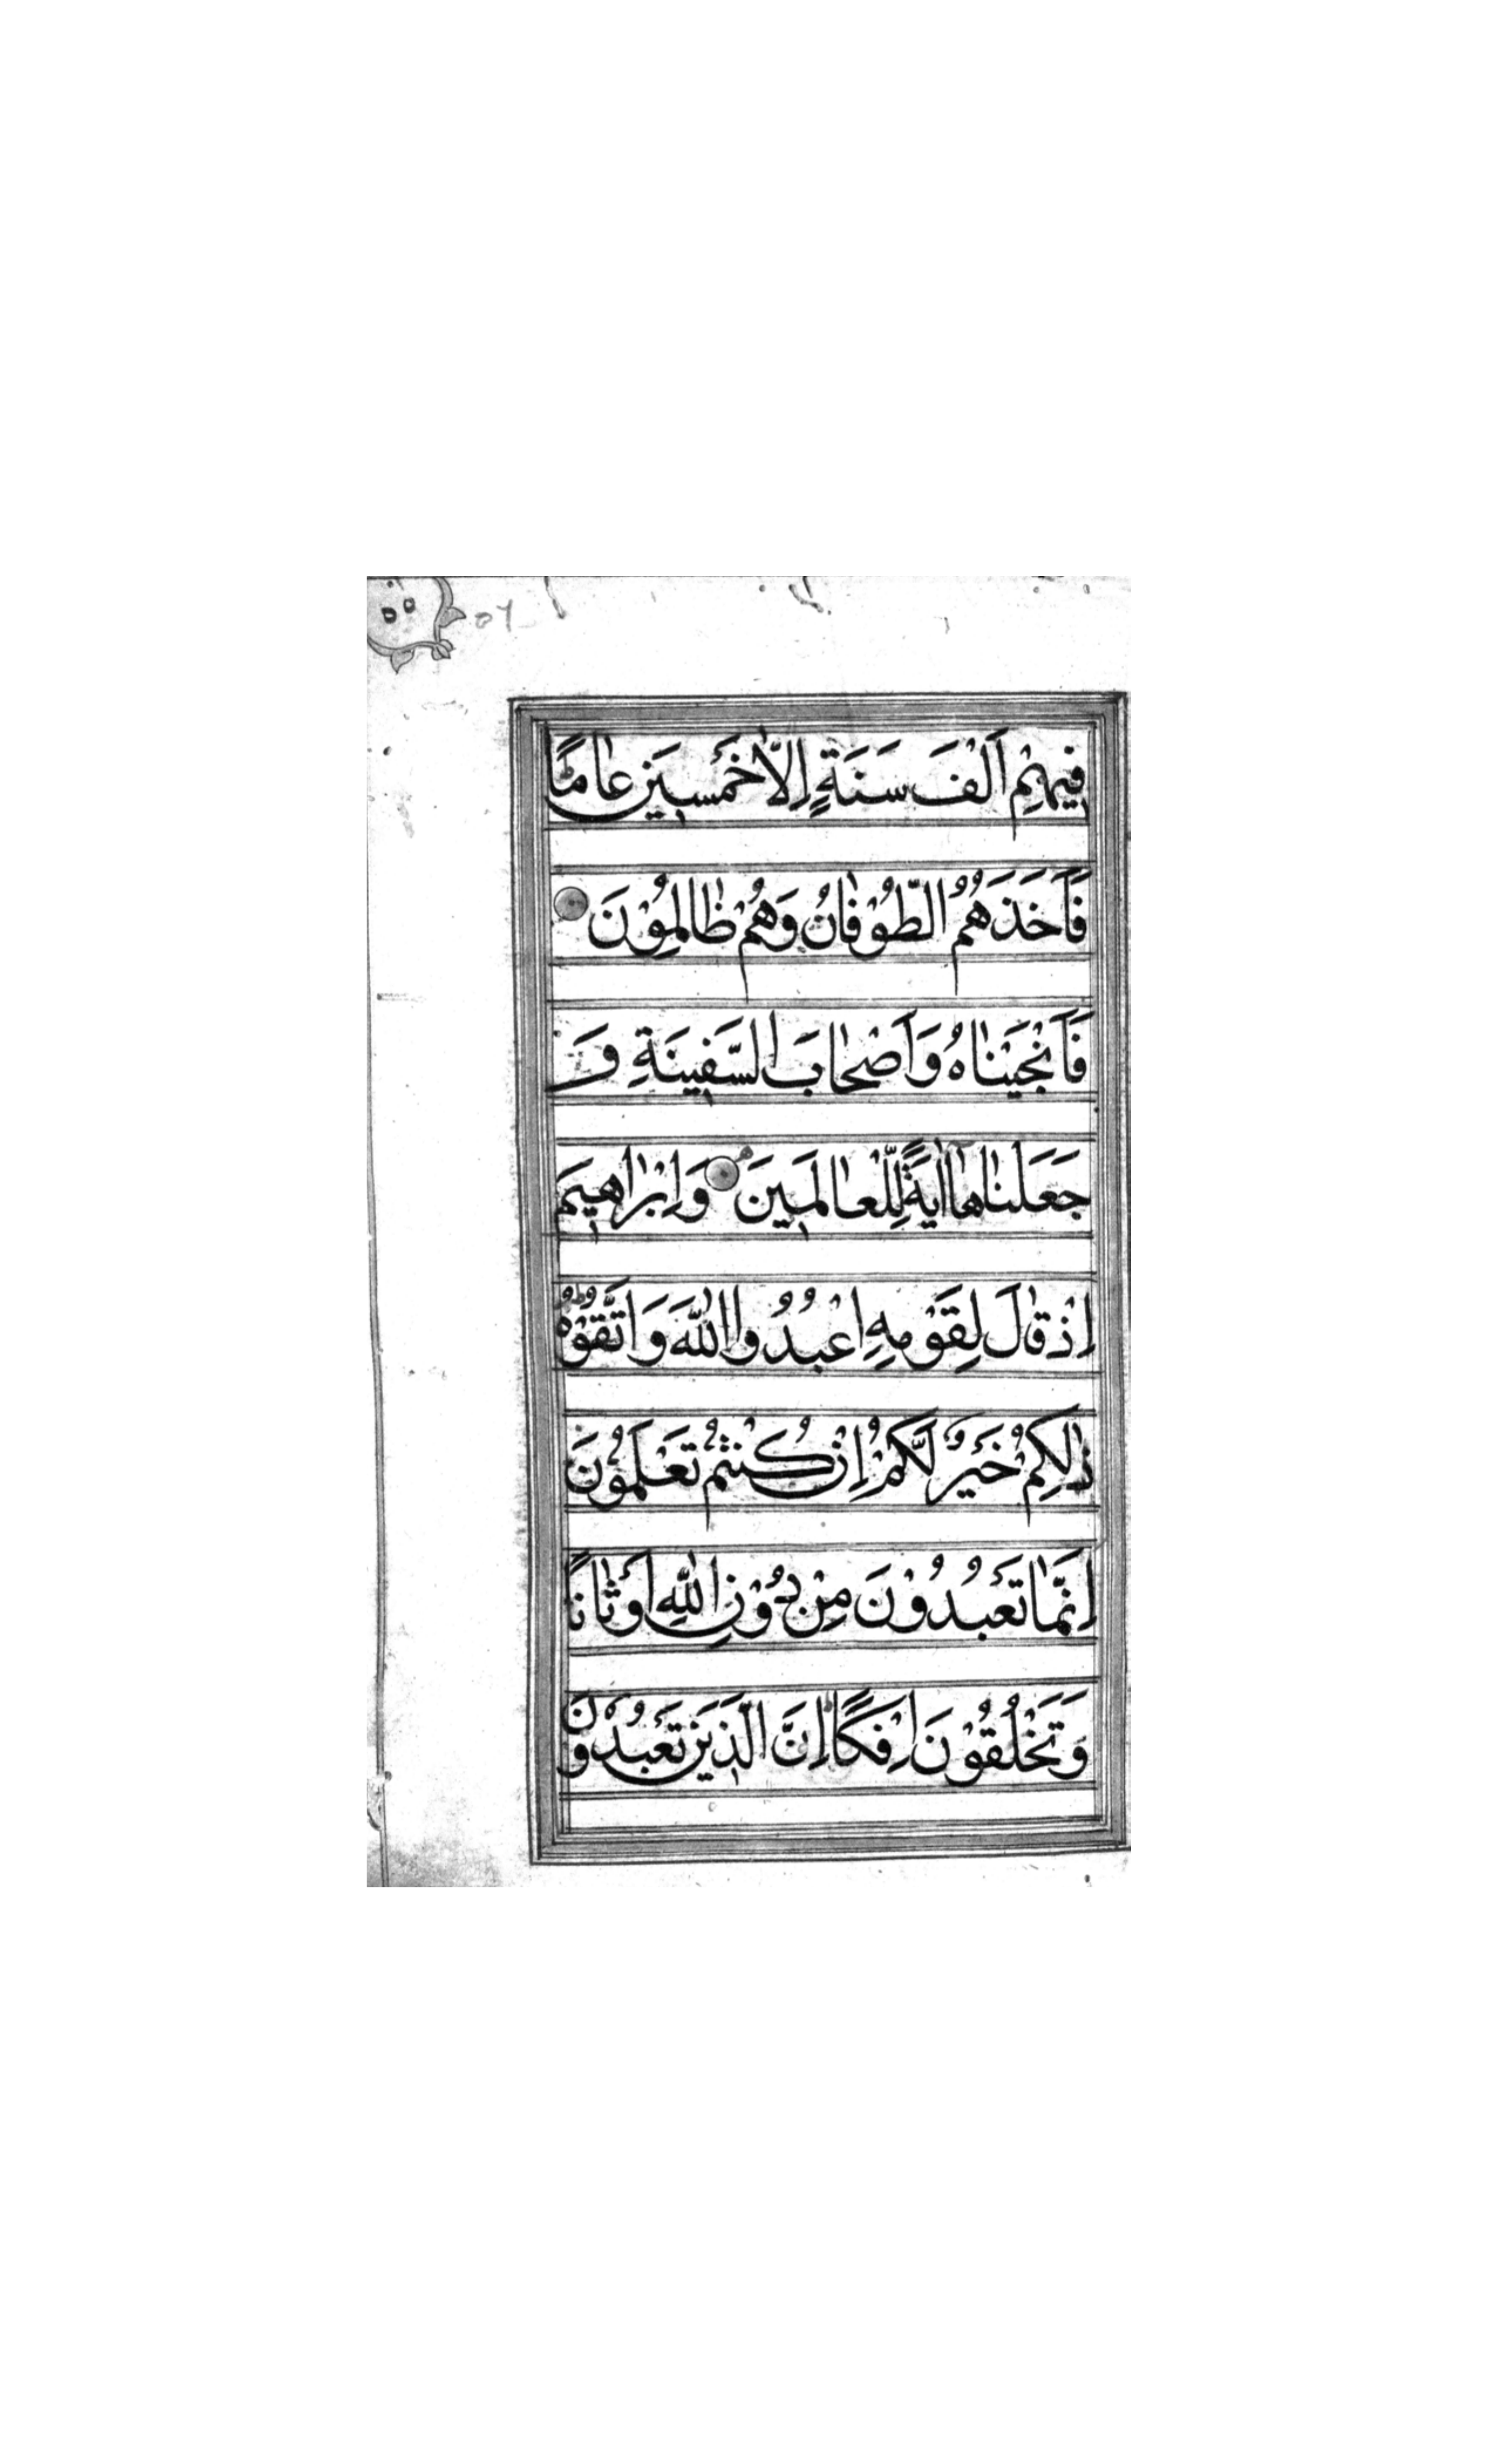 فِيهِمْ اَلْفَ سَنَةٍ اِلَّا خَمْسِينَ عَامًا
فَاَخَذَهُمُ الطُّوْفَانُ وَهُمْ ظَالِمُوْنَ
فَاَنْجَيْنَاهُ وَاَصْحَابَ السَّفِينَةِ وَ
جَعَلْنَاهَا اٰيَةً لِلْعَالَمِينَ وَاِبْرَاهِيمَ
اِذْ قَالَ لِقَوْمِهِ اعْبُدُوا اللّٰهَ وَاتَّقُوْهُ
ذٰلِكُمْ خَيْرٌ لَكُمْ اِنْ كُنْتُمْ تَعْلَمُوْنَ
اِنَّمَا تَعْبُدُوْنَ مِنْ دُوْنِ اللّٰهِ اَوْثَانًا
وَتَخْلُقُوْنَ اِفْكًا اِنَّ الَّذِيْنَ تَعْبُدُوْنَ